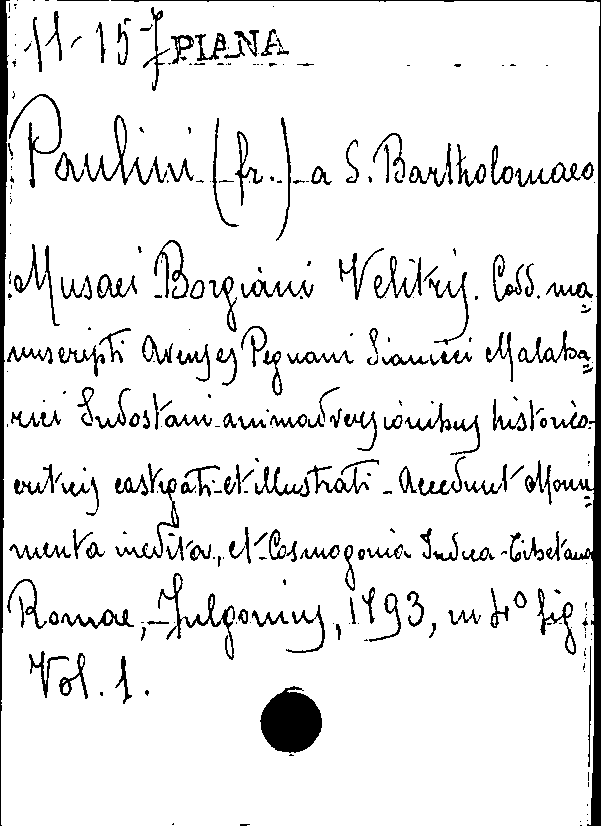 11-15 J PIANA
Paulini (fr.) a S. Bartholomaeo
Musaei Borgiani Velitris. Codd. ma=
nuscripti Avenses Peguani Siamici Malaba=
rici Indostani animadversionibus historico-
criticis castigati et illustrati - Accedunt Monu=
menta inedita, et Cosmogonia Indica-Tibetana
Romae, Fulgonius, 1793, in 4° fig
Vol. 1.